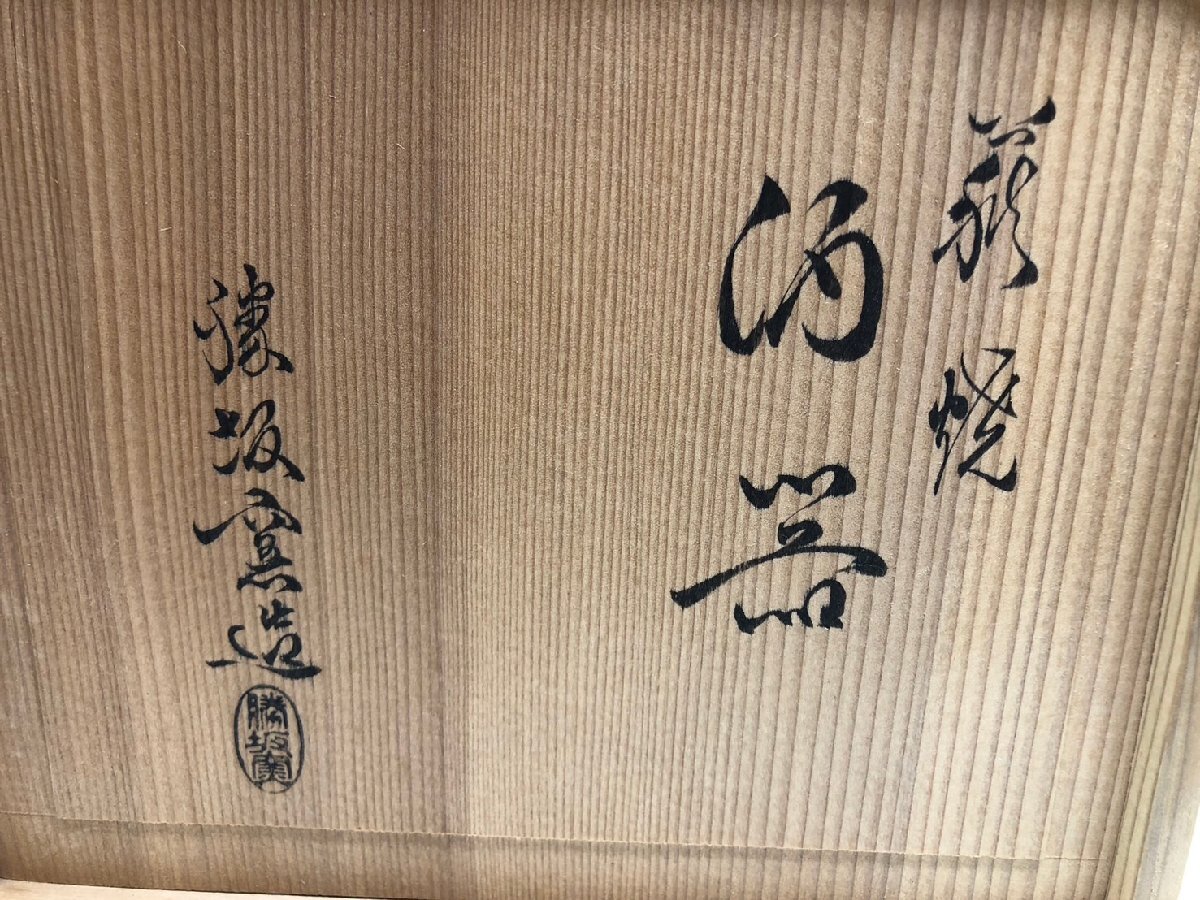 萩焼
酒器
勝坂窯造
勝坂窯